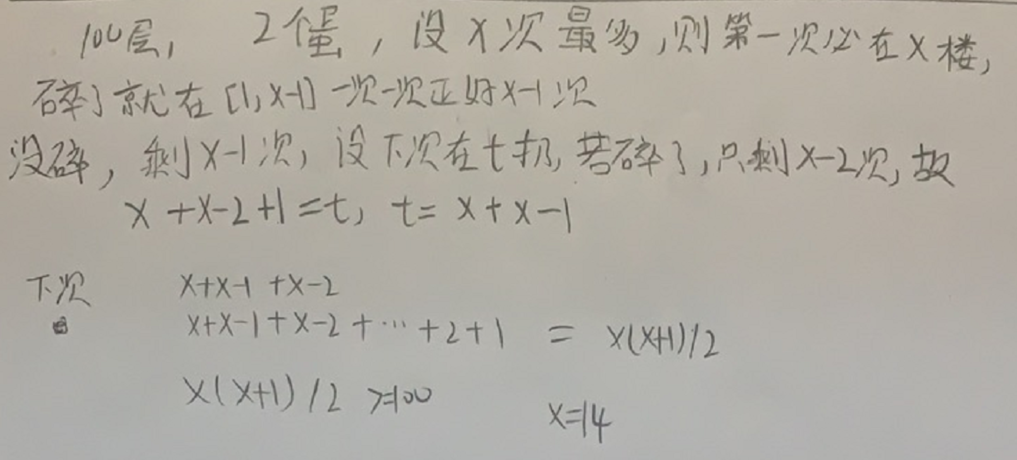 100层, 2个蛋, 设x次最多, 则第一次必在x楼,
碎了就在[1,x-1]一次一次正好x-1次
没碎, 剩x-1次, 设下次在t扔, 若碎了, 只剩x-2次, 故
x+x-2+1=t, t=x+x-1
下次 x+x-1+x-2
x+x-1+x-2+…+2+1 = x(x+1)/2
x(x+1)/2 >=100 x=14